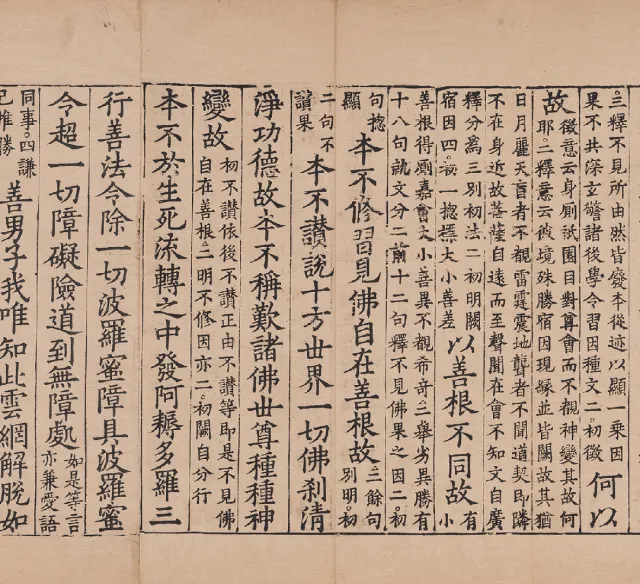 三釋不見所由然皆發本從迹以顯一乘因
果不共深玄警諸後學令習因種文二初徵
何以
故
徵意云身廁祇園目對尊會而不覩神變其故何
耶○二釋意云彼境殊勝宿因現緣並皆闕故其猶
日月麗天盲者不覩雷霆震地聾者不聞道契即隣
不在身近故菩薩自遠而至聲聞在會不知文自廣
釋分為三別初法二初明闕
宿因四○初一揔摽大小善差
以善根不同故
有
小
善根得廁嘉會文小善異不覩希奇○三舉劣異勝有
十八句就文分二前十二句釋不見佛果之因二○初
句揔
顯
本不修習見佛自在善根故
○三餘句
別明○初
二句不
讃果
本不讃說十方世界一切佛剎清
淨功德故本不稱歎諸佛世尊種種神
變故
初不讃依後不讃正由不讃等即是不見佛
自在善根○二明不修因亦二○初闕自分行
本不於生死流轉之中發阿耨多羅三
行善法令除一切波羅蜜障具波羅蜜
令超一切障礙險道到無障處
如是等言
亦兼愛語
同事○四謙
己推勝
善男子我唯知此雲網解脫如